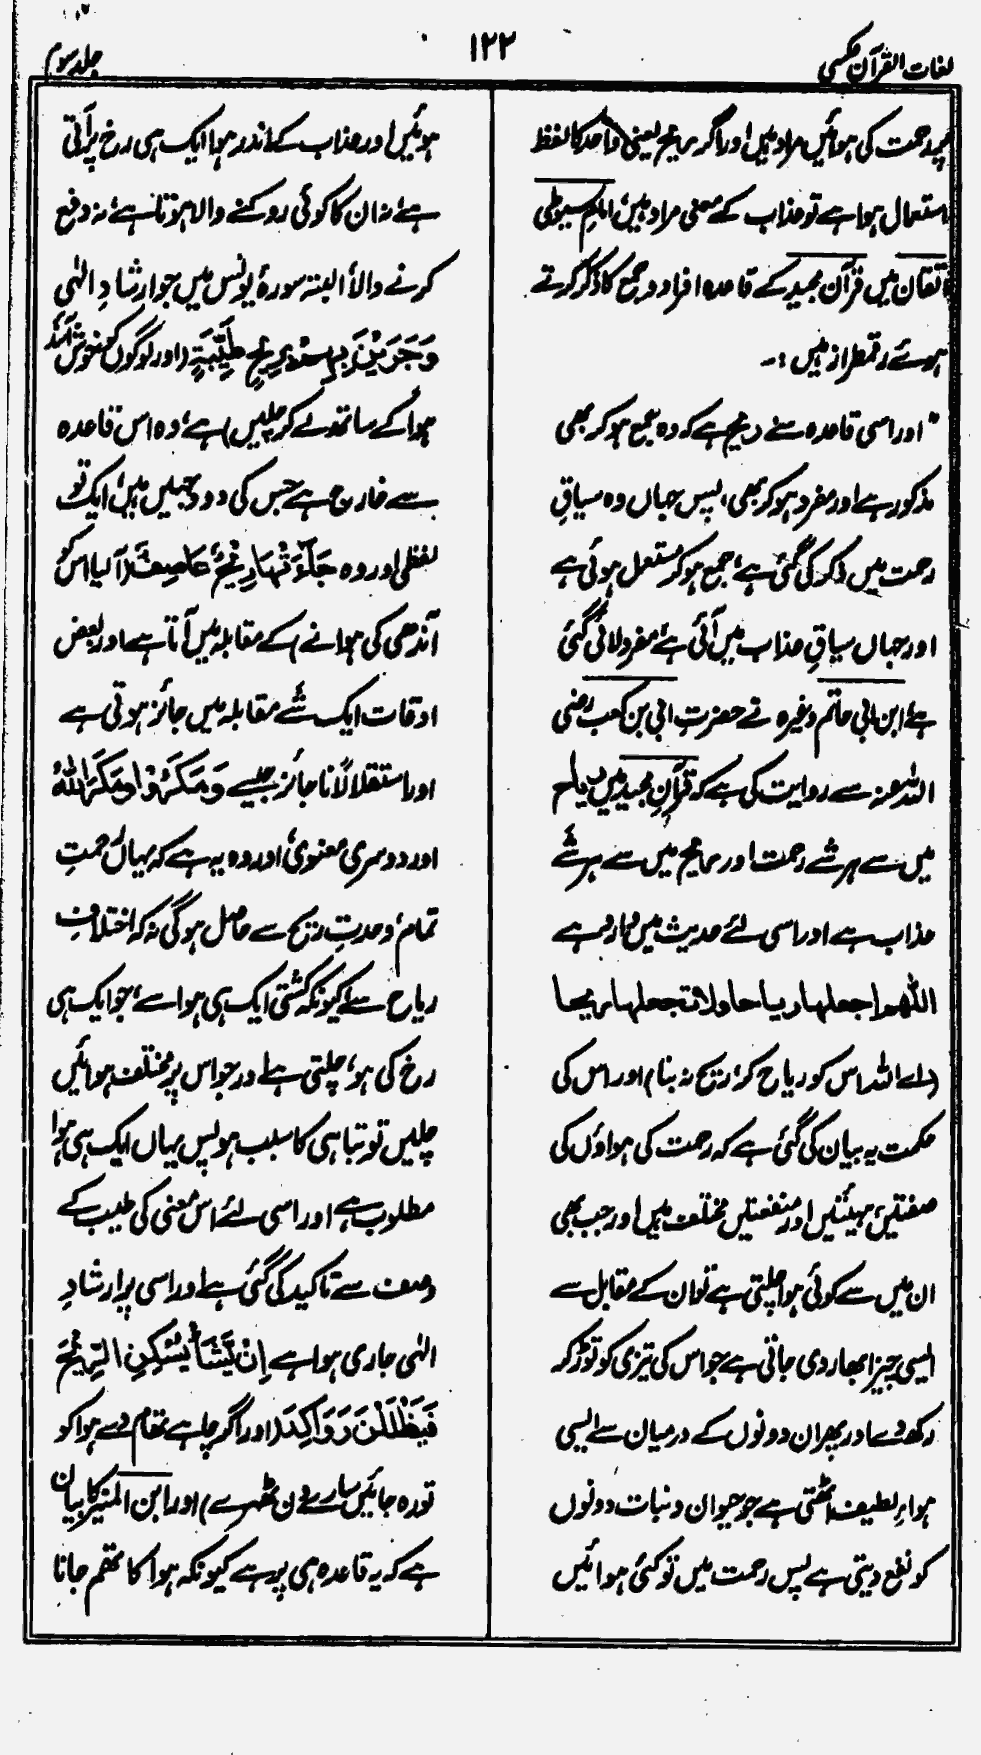 لغات القرآن عکسی
۱۲۲
جلد سوم
پر رحمت کی ہوائیں مراد ہیں اور اگر ریح یعنی واحد کا لفظ
استعمال ہوا ہے تو عذاب کے معنی مراد ہیں، امام سیوطی
اتقان میں قرآن مجید کے قاعدہ افراد و جمع کا ذکر کرتے
ہوئے رقمطراز ہیں :۔
" اور اسی قاعدہ سے ریح ہے کہ وہ جمع ہو کر بھی
مذکور ہے اور مفرد ہو کر بھی، پس جہاں وہ سیاقِ
رحمت میں ذکر کی گئی ہے، جمع ہو کر مستعمل ہوئی ہے
اور جہاں سیاقِ عذاب میں آئی ہے، مفرد لائی گئی
ہے، ابن ابی حاتم وغیرہ نے حضرت ابی بن کعب رضی
اللہ عنہ سے روایت کی ہے کہ قرآن مجید میں ریاح
میں سے ہر شے رحمت اور ریح میں سے ہر شے
عذاب ہے اور اسی لئے حدیث میں وارد ہے
اللھم اجعلہا ریاحا ولا تجعلہا ریحا
(اے اللہ اس کو ریاح کر، ریح نہ بنا) اور اس کی
حکمت یہ بیان کی گئی ہے کہ رحمت کی ہواؤں کی
صفتیں، ہیئتیں اور منفعتیں مختلف ہیں اور جب بھی
ان میں سے کوئی ہوا چلتی ہے تو ان کے مقابل سے
ایسی چیز ابھار دی جاتی ہے جو اس کی تیزی کو توڑ کر
رکھ دے اور پھر ان دونوں کے درمیان سے ایسی
ہواءِ لطیف اٹھتی ہے جو حیوان و نبات دونوں
کو نفع دیتی ہے پس رحمت میں تو کئی ہوائیں
ہوئیں اور عذاب کے اندر ہوا ایک ہی رخ پر آتی
ہے، نہ ان کا کوئی روکنے والا ہوتا ہے، نہ دفع
کرنے والا، البتہ سورۂ یونس میں جو ارشادِ الٰہی
وَجَرَيْنَ بِهِمْ بِرِيْحٍ طَيِّبَةٍ (اور لوگوں کو خوش آئند
ہوا کے ساتھ لے کر چلیں) ہے، وہ اس قاعدہ
سے خارج ہے جس کی دو وجہیں ہیں، ایک تو
لفظی اور وہ جَآءَتْهَا رِيْحٌ عَاصِفٌ (آ لیا اس کو
آندھی کی ہوا نے) کے مقابلہ میں آتا ہے اور بعض
اوقات ایک شے مقابلہ میں جائز ہوتی ہے
اور استقلالاً نا جائز جیسے وَمَكَرُوْا وَمَكَرَ اللهُ
اور دوسری معنوی، اور وہ یہ ہے کہ یہاں رحمتِ
تمام، وحدتِ ریح سے حاصل ہوگی نہ کہ اختلافِ
ریاح سے، کیونکہ کشتی ایک ہی ہوا سے، جو ایک ہی
رخ کی ہو، چلتی ہے اور جو اس پر مختلف ہوائیں
چلیں تو تباہی کا سبب ہو پس یہاں ایک ہی ہوا
مطلوب ہے اور اسی لئے اس معنی کی طیب کے
وصف سے تاکید کی گئی ہے اور اسی پر ارشادِ
الٰہی جاری ہوا ہے اِنْ يَّشَأْ يُسْكِنِ الرِّيْحَ
فَيَظْلَلْنَ رَوَاكِدَ (اور اگر چاہے تھام دے ہوا کو
تو رہ جائیں سارے دن ٹھہرے) اور ابن المنیر کا بیان
ہے کہ یہ قاعدہ ہی پر ہے کیونکہ ہوا کا تھم جانا